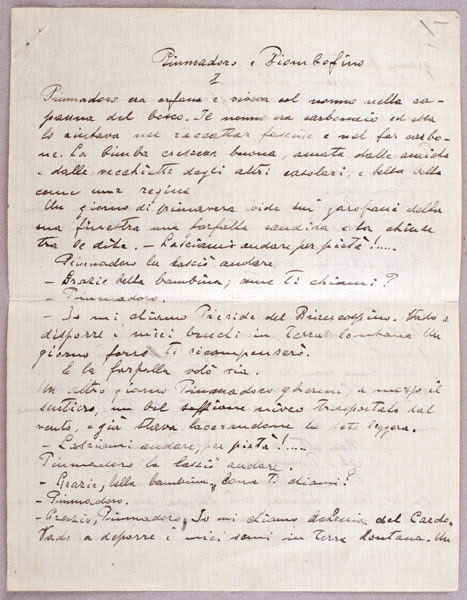 Piumadoro e Piombofino
I
Piumadoro era orfana e viveva col nonno nella ca-
panna del bosco. Il nonno era carbonaio ed essa
lo aiutava nel raccattar fascine e nel far carbo-
ne. La bimba cresceva buona, amata dalle amiche
e dalle vecchiette degli altri casolari, e bella bella
come una regina
Un giorno di primavera vide sui garofani della
sua finestra una farfalla candida e la chiuse
tra le dita. — Lasciami andare per pietà!....
Piumadoro la lasciò andare.
— Grazie bella bambina; come ti chiami?
— Piumadoro.
— Io mi chiamo Pieride del Biancospino. Vado a
disporre i miei bruchi in terra lontana. Un
giorno forse ti ricompenserò.
E la farfalla volò via.
Un altro giorno Piumadoro ghermì, a mezzo il
sentiero, un bel soffione niveo trasportato dal
vento, e già stava lacerandone la seta leggera.
— Lasciami andare, per pietà!.....
Piumadoro lo lasciò andare.
— Grazie, bella bambina, Come ti chiami?
— Piumadoro.
— Grazie, Piumadoro, Io mi chiamo Achenio del Cardo.
Vado a deporre i miei semi in terra lontana. Un